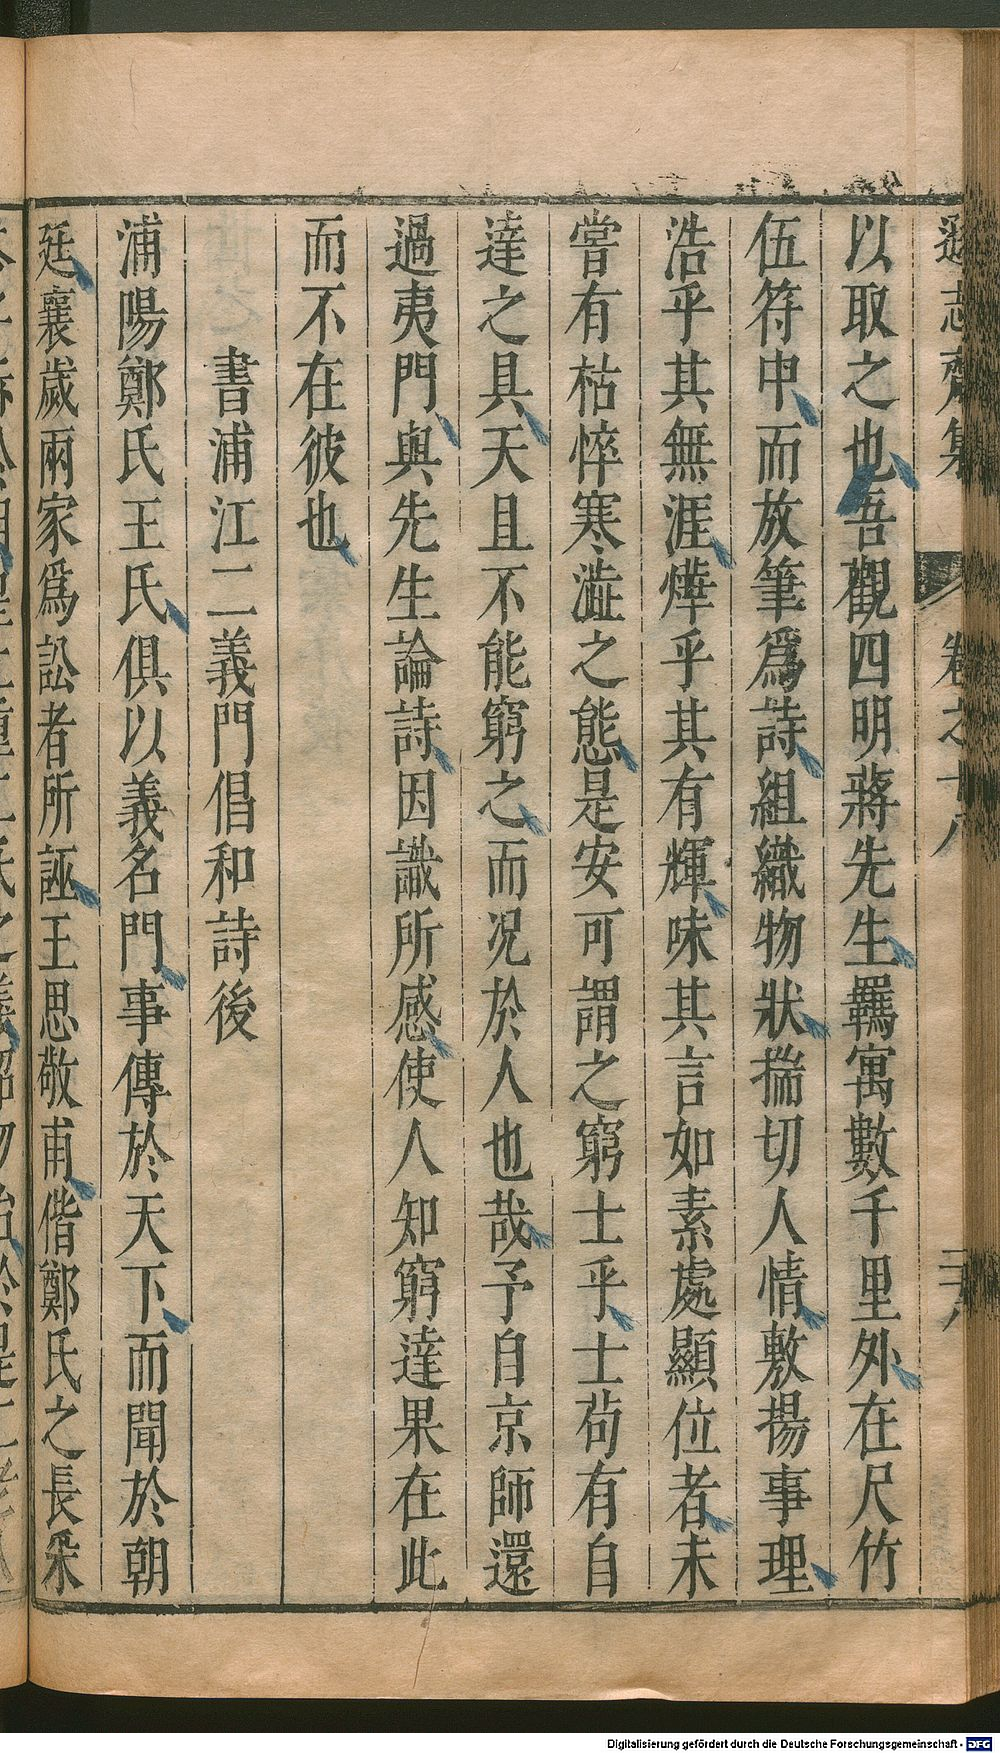 遜志齋集
卷之十八
二十八
以取之也吾觀四明蔣先生羈寓數千里外在尺竹
伍符中而放筆爲詩組織物狀揣切人情敷揚事理
浩乎其無涯燁乎其有輝味其言如素處顯位者未
嘗有枯悴寒澁之態是安可謂之窮士乎士茍有自
達之具天且不能窮之而况於人也哉予自京師還
過夷門與先生論詩因識所感使人知窮達果在此
而不在彼也
書浦江二義門倡和詩後
浦陽鄭氏王氏俱以義名門事傳於天下而聞於朝
廷襄歲兩家爲訟者所誣王思敬甫偕鄭氏之長采
Digitalisierung gefördert durch die Deutsche Forschungsgemeinschaft - DFG